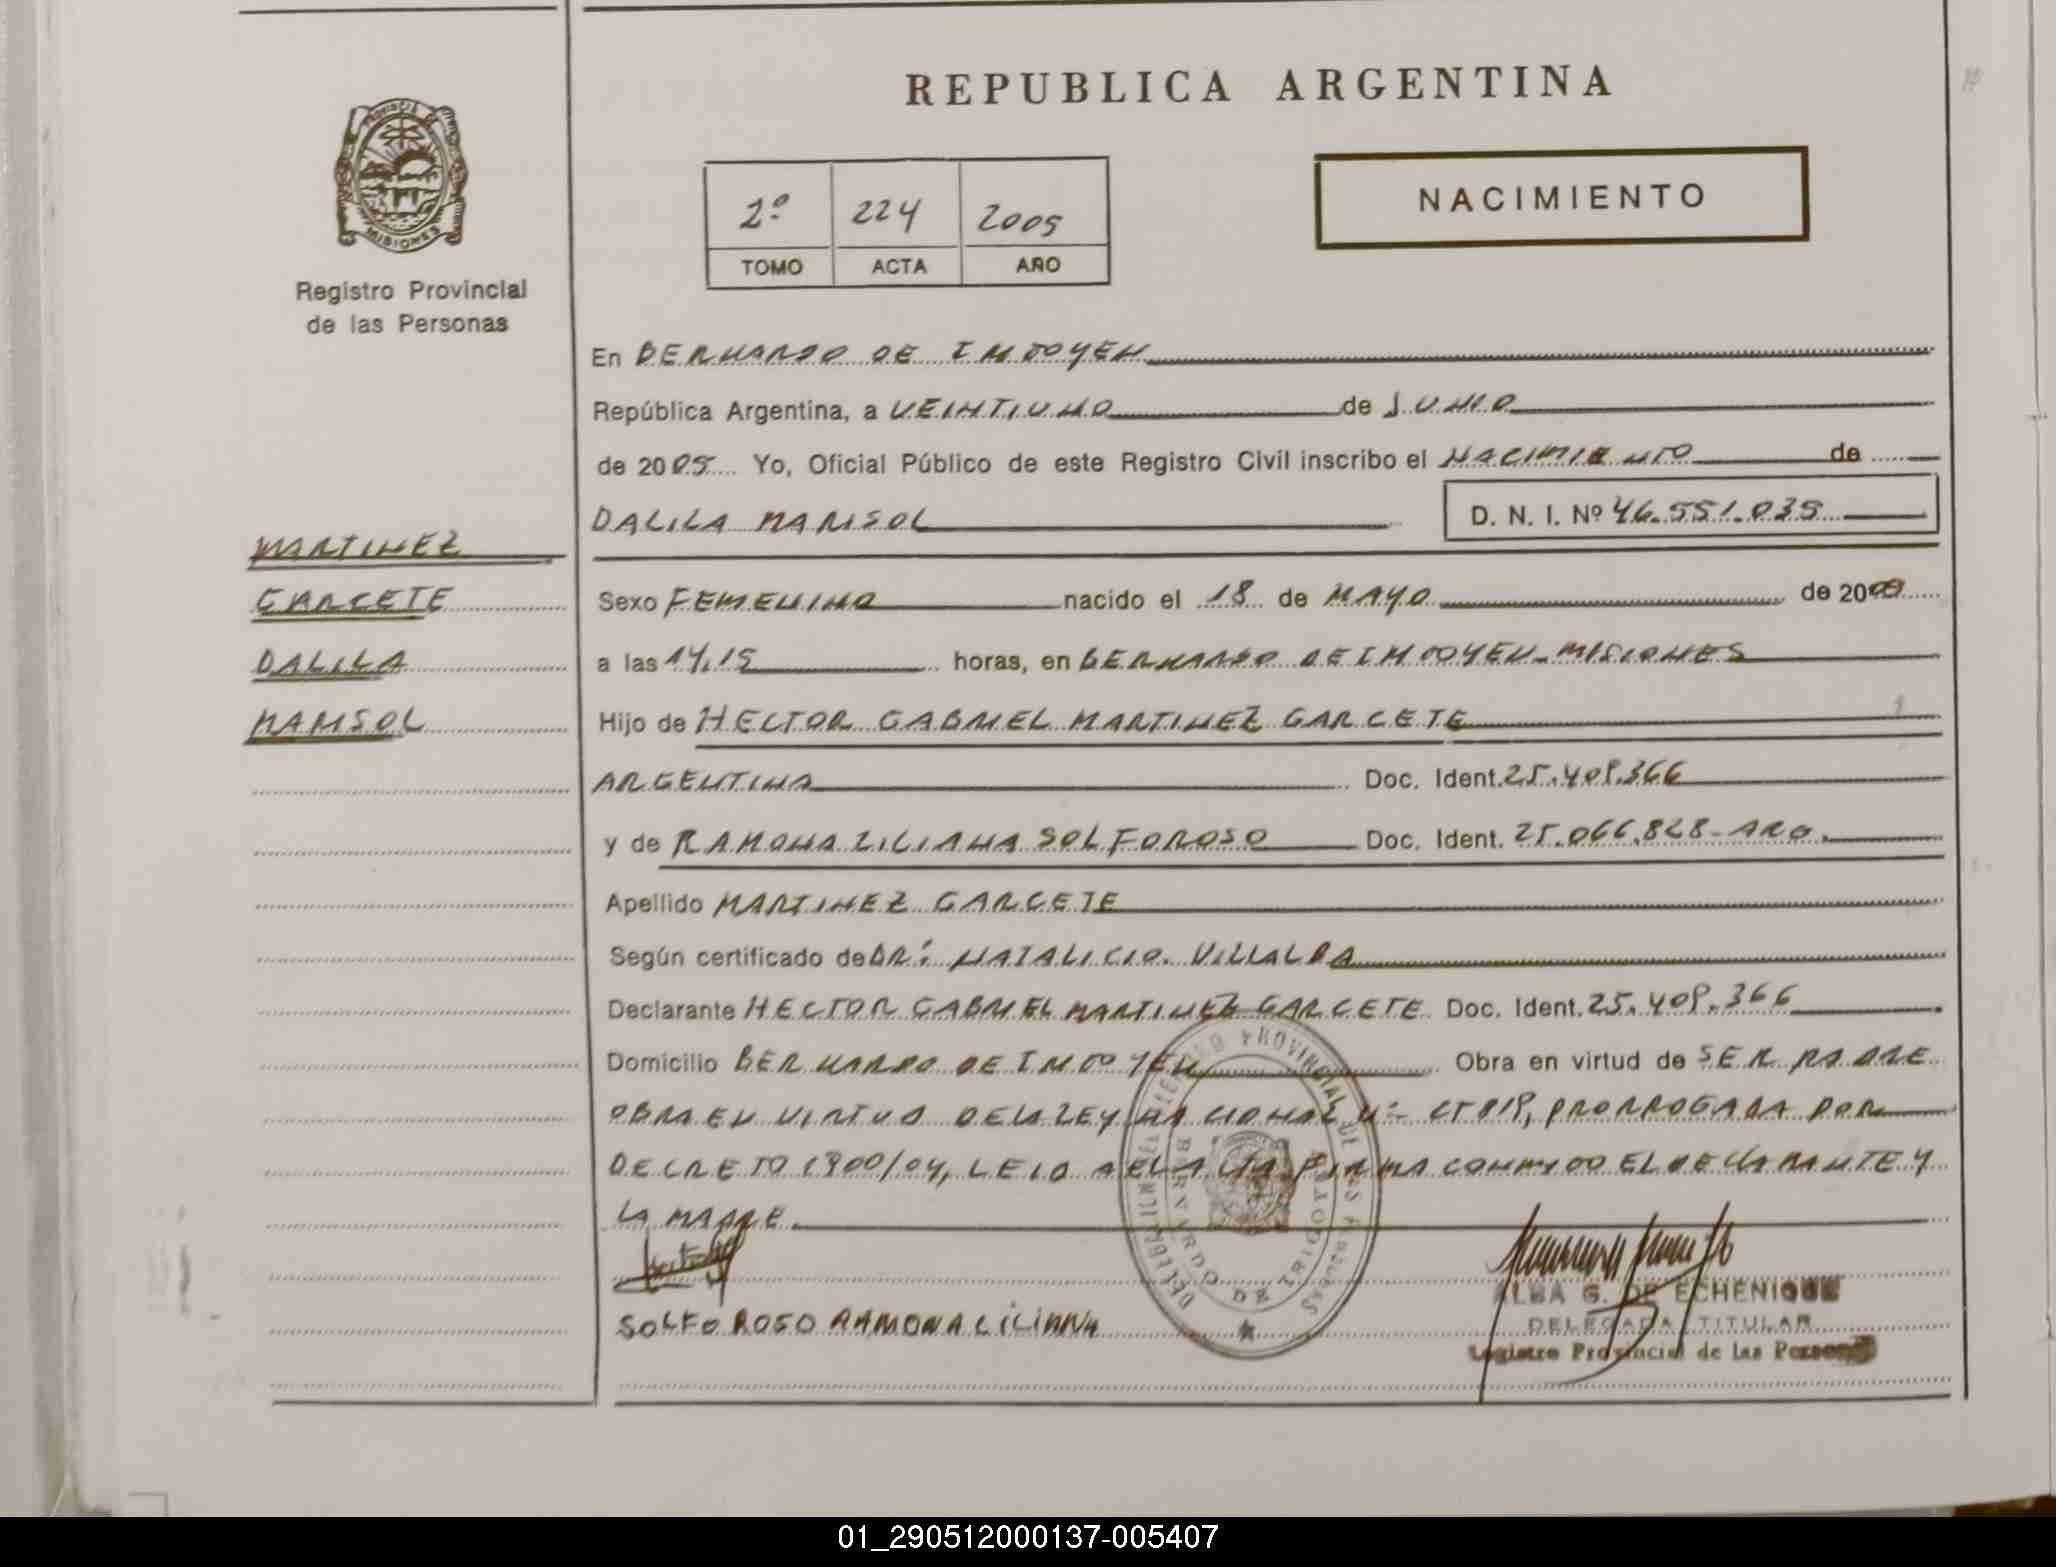 REPUBLICA ARGENTINA
PROVINCIA DE
MISIONES
Registro Provincial
de las Personas
2º 224 2005
TOMO ACTA AÑO
NACIMIENTO
En BERNARDO DE IRIGOYEN
República Argentina, a VEINTIUNO de JUNIO
de 2005 Yo, Oficial Público de este Registro Civil inscribo el NACIMIENTO de
DALILA MARISOL D. N. I. Nº 46.551.035
MARTINEZ
GARCETE
DALILA
MARISOL
Sexo FEMENINO nacido el 18 de MAYO de 20
a las 14,15 horas, en BERNARDO DE IRIGOYEN-MISIONES
Hijo de HECTOR GABRIEL MARTINEZ GARCETE
ARGENTINA Doc. Ident. 25.409.366
y de RAMONA LILIANA SOLFOROSO Doc. Ident. 25.066.828-ARG.
Apellido MARTINEZ GARCETE
Según certificado de DR: NATALICIO VILLALBA
Declarante HECTOR GABRIEL MARTINEZ GARCETE Doc. Ident. 25.409.366
Domicilio BERNARDO DE IRIGOYEN Obra en virtud de SER PADRE
OBRA EN VIRTUD DE LA LEY NACIONAL Nº- 25819, PRORROGADA POR
DECRETO 1900/04, LEIDA EL ACTA FIRMA CONMIGO EL DECLARANTE Y
LA MADRE
SOLFOROSO RAMONA LILIANA
PROVINCIAL DE LAS PERSONAS
BERNARDO DE IRIGOYEN
ALBA G. DE ECHENIQUE
DELEGADA TITULAR
Registro Provincial de las Personas
01_290512000137-005407